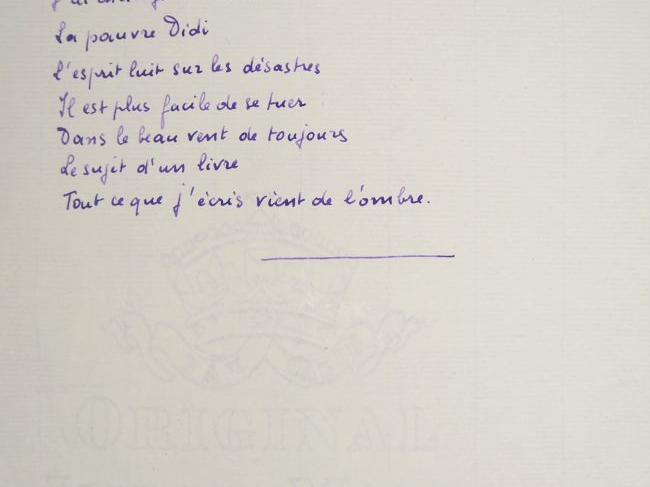 La pauvre Didi
L'esprit luit sur les désastres
Il est plus facile de se tuer
Dans le beau vent de toujours
Le sujet d'un livre
Tout ce que j'écris vient de l'ombre.
ORIGINAL